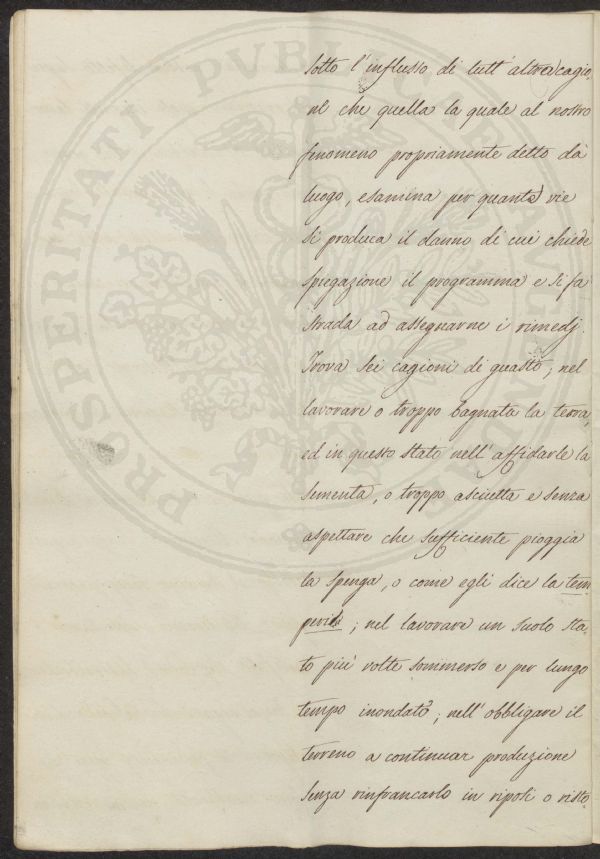 PROSPERITATI PVBLICAE AVGENDAE
sotto l'influsso di tutt'altra cagio
ne che quella la quale al nostro
fenomeno propriamente detto dà
luogo, esamina per quante vie
si produca il danno di cui chiede
spiegazione il programma e si fa
strada ad assegnarne i rimedj.
Trova sei cagioni di guasto; nel
lavorare o troppo bagnata la terra,
ed in questo stato nell'affidarle la
sementa, o troppo asciutta e senza
aspettare che sufficiente pioggia
la spenga, o come egli dice la tem
perisi; nel lavorare un suolo sta-
to più volte sommerso e per lungo
tempo inondato; nell'obbligare il
terreno a continuar produzione
senza rinfrancarlo in riposi o risto-